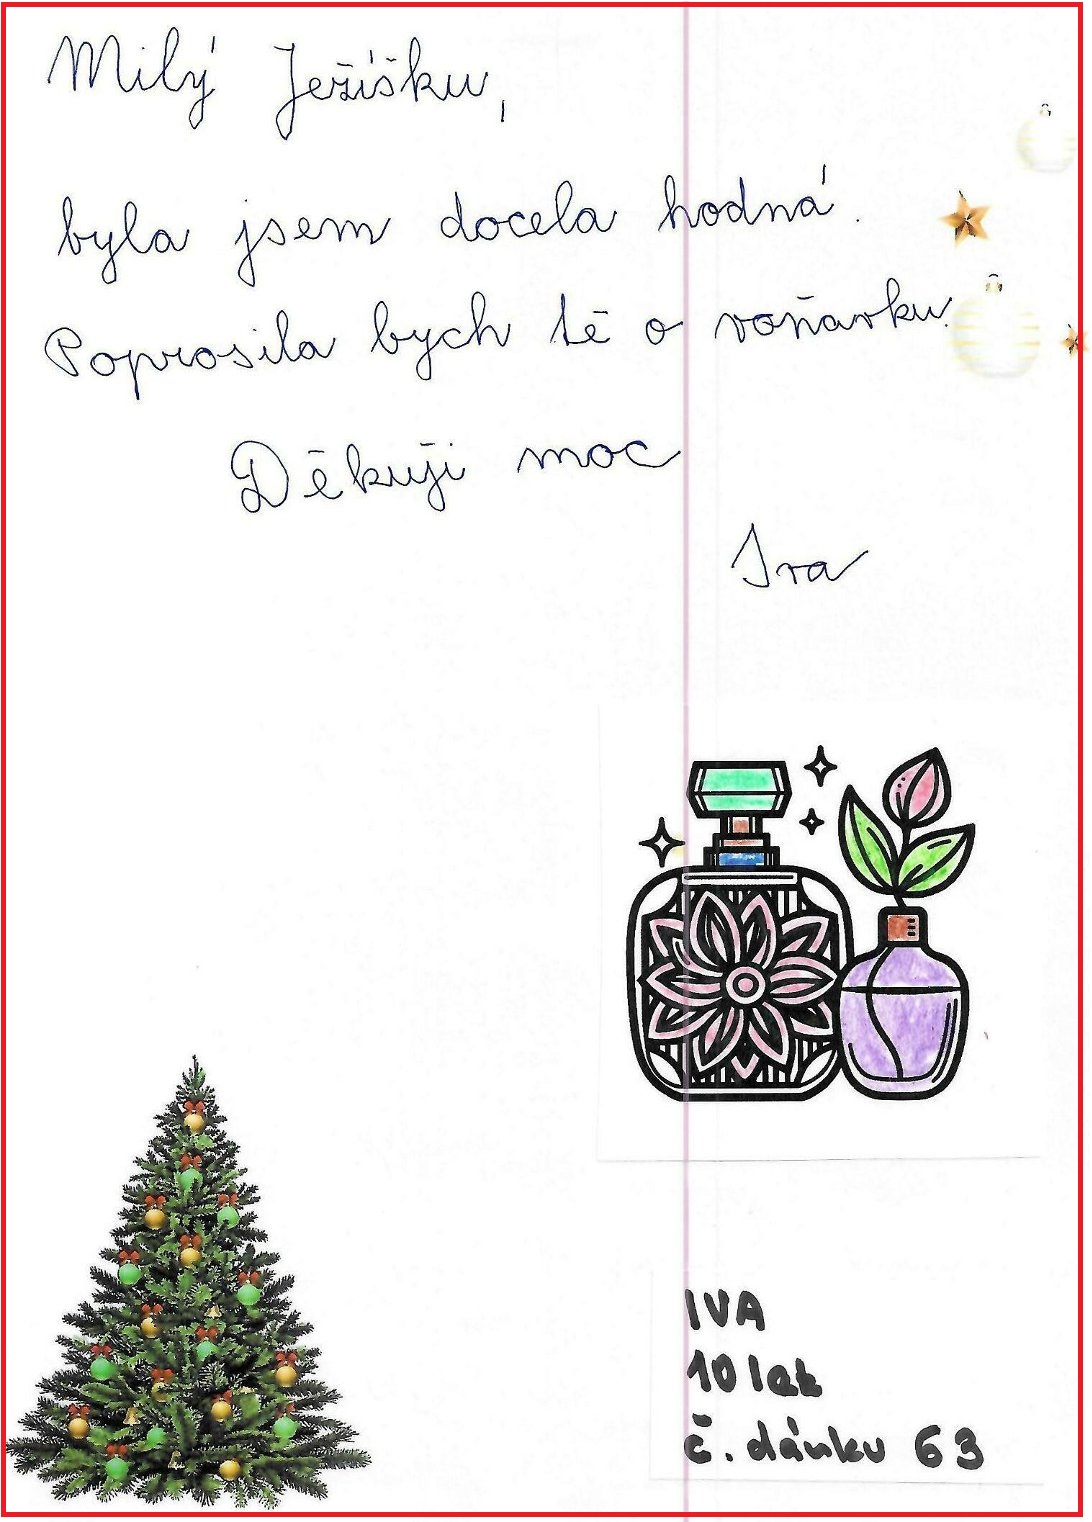 Milý Ježíšku,
byla jsem docela hodná.
Poprosila bych tě o voňavku.
Děkuji moc
Iva
IVA
10 let
č. dárku 63